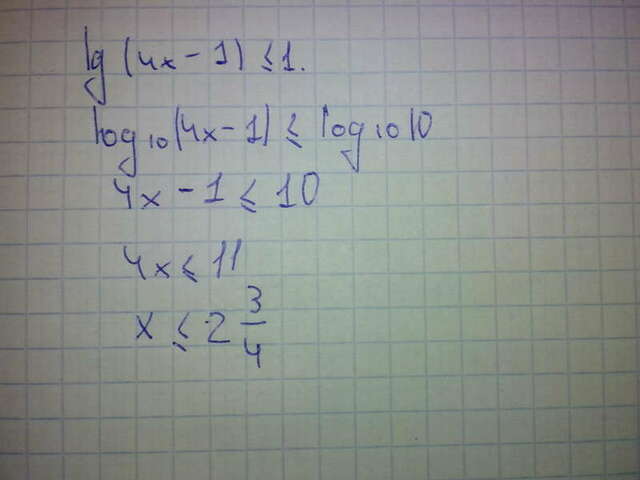 lg (4x - 1) ≤ 1.
log₁₀(4x - 1) ≤ log₁₀10
4x - 1 ≤ 10
4x ≤ 11
x ≤ 2 3/4